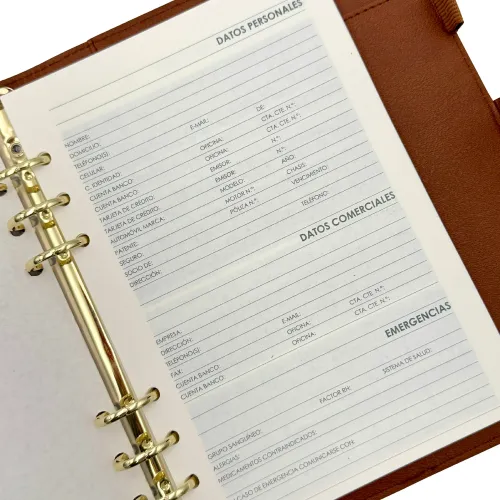 DATOS PERSONALES
NOMBRE:
DOMICILIO: E-MAIL: DE:
TELÉFONO(S): CTA. CTE. N.º:
CELULAR: OFICINA: CTA. CTE. N.º:
C. IDENTIDAD: OFICINA: N.º:
CUENTA BANCO: EMISOR: N.º:
CUENTA BANCO: EMISOR: AÑO:
TARJETA DE CRÉDITO: MODELO: CHASIS:
TARJETA DE CRÉDITO: MOTOR N.º: VENCIMIENTO:
AUTOMÓVIL MARCA: PÓLIZA N.º:
PATENTE:
SEGURO: TELÉFONO:
SOCIO DE:
DIRECCIÓN:
DATOS COMERCIALES
EMPRESA:
DIRECCIÓN: E-MAIL: CTA. CTE. N.º:
TELÉFONO(S): OFICINA: CTA. CTE. N.º:
FAX: OFICINA:
CUENTA BANCO:
CUENTA BANCO:
EMERGENCIAS
GRUPO SANGUÍNEO: FACTOR RH: SISTEMA DE SALUD:
ALERGIAS:
MEDICAMENTOS CONTRAINDICADOS:
CASO DE EMERGENCIA COMUNICARSE CON: